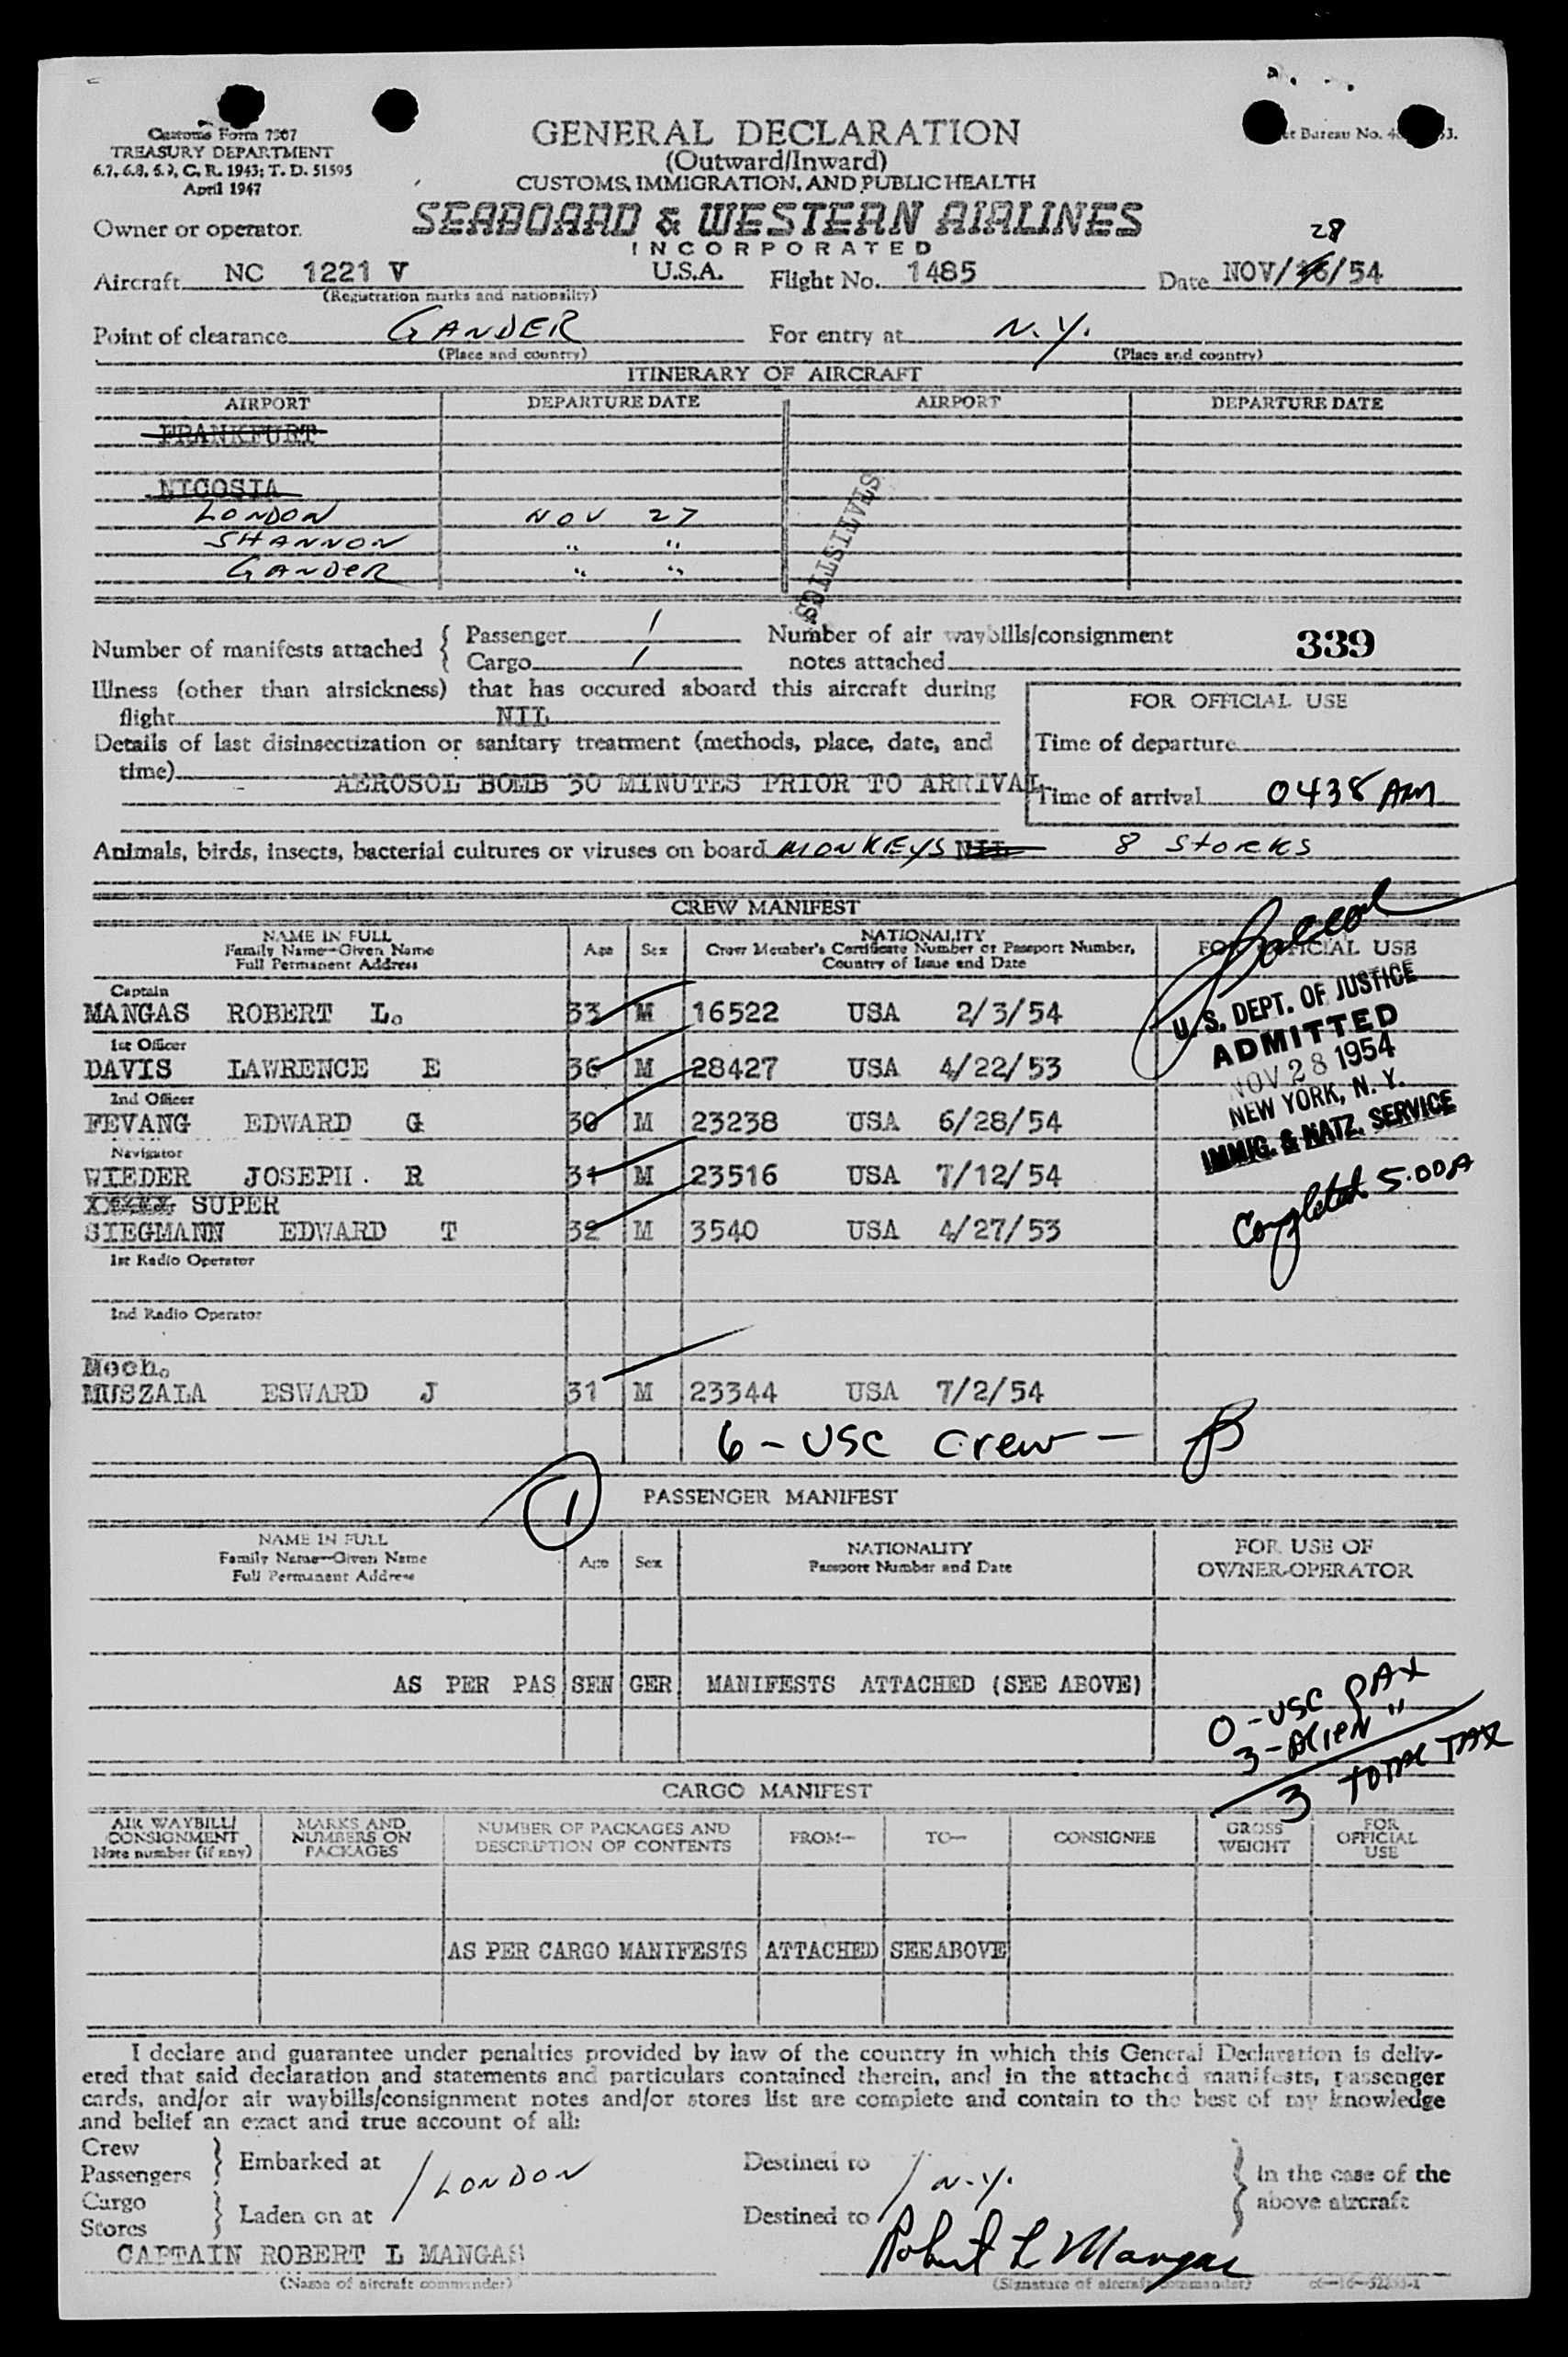 Customs Form 7507
TREASURY DEPARTMENT
6.7, 6.8, 6.9, C. R. 1943; T. D. 51595
April 1947
GENERAL DECLARATION
(Outward/Inward)
CUSTOMS, IMMIGRATION, AND PUBLIC HEALTH
Bureau No.
Owner or operator.
SEABOARD & WESTERN AIRLINES
INCORPORATED
28
Aircraft NC 1221 V U.S.A. Flight No. 1485 Date NOV/ /54
(Registration marks and nationality)
Point of clearance GANDER For entry at N.Y.
(Place and country) (Place and country)
ITINERARY OF AIRCRAFT
AIRPORT DEPARTURE DATE AIRPORT DEPARTURE DATE
FRANKFURT
NICOSIA
LONDON NOV 27
SHANNON " "
GANDER " "
STATISTICS
Number of manifests attached { Passenger 1
Cargo 1
Number of air waybills/consignment
notes attached
339
Illness (other than airsickness) that has occured aboard this aircraft during
flight NIL
Details of last disinsectization or sanitary treatment (methods, place, date, and
time) AEROSOL BOMB 30 MINUTES PRIOR TO ARRIVAL
FOR OFFICIAL USE
Time of departure
Time of arrival 0438 AM
Animals, birds, insects, bacterial cultures or viruses on board MONKEYS NIL 8 Storks
CREW MANIFEST
NAME IN FULL
Family Name—Given Name
Full Permanent Address
Age Sex
NATIONALITY
Crew Member's Certificate Number or Passport Number,
Country of Issue and Date
FOR OFFICIAL USE
Captain
MANGAS ROBERT L. 33 M 16522 USA 2/3/54
1st Officer
DAVIS LAWRENCE E 36 M 28427 USA 4/22/53
2nd Officer
FEVANG EDWARD G 30 M 23238 USA 6/28/54
Navigator
WIEDER JOSEPH. R 31 M 23516 USA 7/12/54
SUPER
SIEGMANN EDWARD T 32 M 3540 USA 4/27/53
1st Radio Operator
2nd Radio Operator
Mech.
MUSZALA ESWARD J 31 M 23344 USA 7/2/54
6 - USC Crew -
U.S. DEPT. OF JUSTICE
ADMITTED
NOV 28 1954
NEW YORK, N. Y.
IMMIG. & NATZ. SERVICE
Completed 5.00A
1
PASSENGER MANIFEST
NAME IN FULL
Family Name—Given Name
Full Permanent Address
Age Sex
NATIONALITY
Passport Number and Date
FOR USE OF
OWNER-OPERATOR
AS PER PASSENGER MANIFESTS ATTACHED (SEE ABOVE)
0 - USC PAX
3 - Alien "
3 TOTAL PAX
CARGO MANIFEST
AIR WAYBILL/
CONSIGNMENT
Note number (if any)
MARKS AND
NUMBERS ON
PACKAGES
NUMBER OF PACKAGES AND
DESCRIPTION OF CONTENTS
FROM— TO— CONSIGNEE
GROSS
WEIGHT
FOR
OFFICIAL
USE
AS PER CARGO MANIFESTS ATTACHED SEE ABOVE
I declare and guarantee under penalties provided by law of the country in which this General Declaration is deliv-
ered that said declaration and statements and particulars contained therein, and in the attached manifests, passenger
cards, and/or air waybills/consignment notes and/or stores list are complete and contain to the best of my knowledge
and belief an exact and true account of all:
Crew
Passengers } Embarked at
Cargo
Stores } Laden on at
/ LONDON
Destined to
Destined to
/ N.Y.
} In the case of the
above aircraft
CAPTAIN ROBERT L MANGAS
(Name of aircraft commander)
Robert L Mangas
(Signature of aircraft commander)